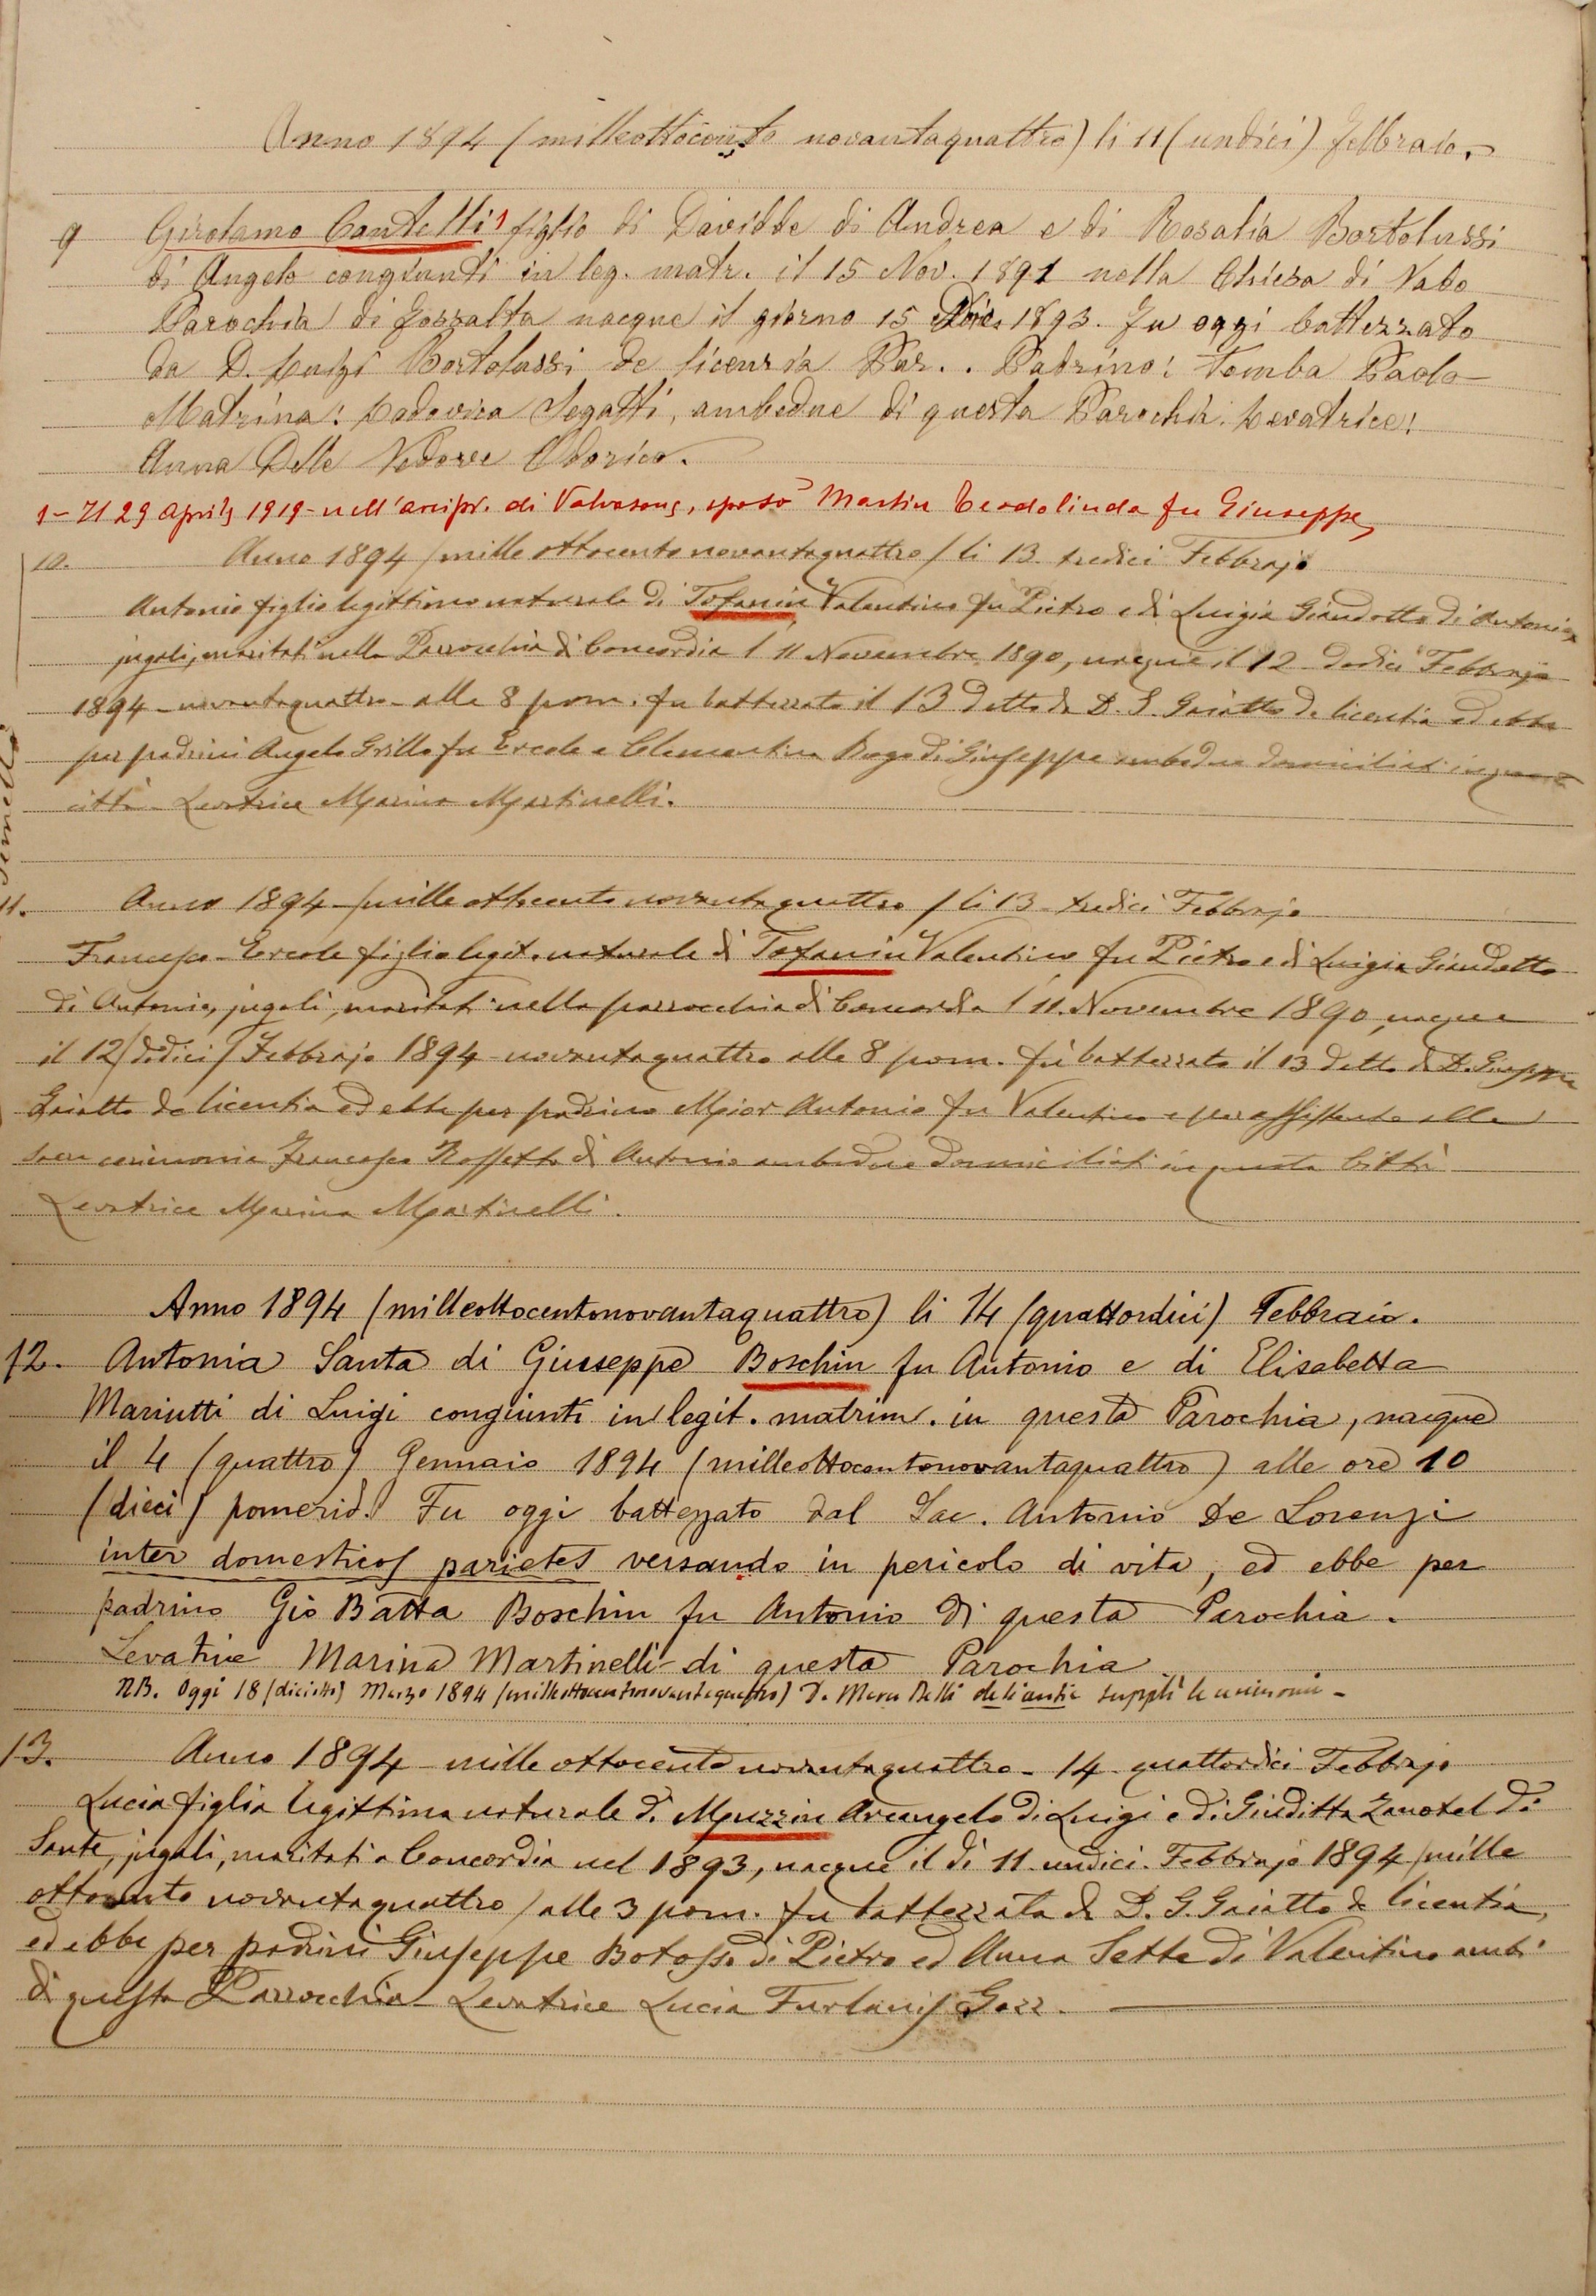 Anno 1894 (milleottocento novantaquattro) li 11 (undici) Febbraio.
9 Girolamo Cantelli 1 figlio di Davidde di Andrea e di Rosalia Bortolussi
di Angelo congiunti in leg. matr. il 15 Nov. 1891 nella Chiesa di Vado
Parochia di Fossalta nacque il giorno 15 1893. Fu oggi battezzato
da D. Luigi Bortolussi de licentia Par.. Padrino: Tomba Paolo
Matrina: Lodovica Segatti, ambedue di questa Parochia. Levatrice:
Anna Delle Vedove Odorico.
1 - Il 29 aprile 1919 - nell'arcipr. di Valvasone, sposò Martin Teodolinda fu Giuseppe
10. Anno 1894 / mille ottocento novantaquattro / li 13 tredici Febbrajo
Antonio figlio legittimo naturale di Tofanin Valentino fu Pietro e di Luigia Giandotto di Antonio
jugali, maritati nella Parrocchia di Concordia l 11 Novembre 1890, nacque il 12 dodici Febbrajo
1894 - novantaquattro - alle 8 pom. fu battezzato il 13 detto da D. G. Gaiatto de licentia ed ebbe
per padrini Angelo Grillo fu Ercole e Clementina di Giuseppe ambedue domiciliati in questa
città - Levatrice Marina Martinelli.
gemelli
11. Anno 1894 - / mille ottocento novantaquattro / li 13 - tredici Febbrajo
Francesco - Ercole figlio legit. naturale di Tofanin Valentino fu Pietro e di Luigia Giandotto
di Antonio, jugali, maritati nella parrocchia di Concordia l 11. Novembre 1890, nacque
il 12 / dodici / Febbrajo 1894 novantaquattro alle 8 pom. fù battezzato il 13 detto da D. Giuseppe
Gaiatto de licentia ed ebbe per padrino Maior Antonio fu Valentino e per assistente alla
sacra cerimonia Francesco Rossetto di Antonio ambedue domiciliati in questa Città
Levatrice Marina Martinelli.
Anno 1894 (milleottocentonovantaquattro) li 14 (quattordici) Febbraio.
12. Antonia Santa di Giuseppe Boschin fu Antonio e di Elisabetta
Mariutti di Luigi congiunti in legit. matrim. in questa Parochia, nacque
il 4 (quattro) Gennaio 1894 (milleottocentonovantaquattro) alle ore 10
(dieci) pomerid. Fu oggi battezzato dal Sac. Antonio De Lorenzi
inter domesticos parietes versando in pericolo di vita, ed ebbe per
padrino Gio Batta Boschin fu Antonio di questa Parochia.
Levatrice Marina Martinelli di questa Parochia
NB. Oggi 18 (diciotto) Marzo 1894 (milleottocentonovantaquattro) D. Marco Belli de licentia supplì le cerimonie -
13. Anno 1894 - mille ottocento novantaquattro - 14 - quattordici Febbrajo
Lucia figlia legittima naturale di Muzzin Arcangelo di Luigi e di Giuditta Zanotel di
Sante, jugali, maritati a Concordia nel 1893, nacque il dì 11 undici. Febbrajo 1894 / mille
ottocento novantaquattro / alle 3 pom. fu battezzata da D. G. Gaiatto de licentia,
ed ebbe per padrini Giuseppe Botosso di Pietro ed Anna Sette di Valentino ambi
di questa Parrocchia - Levatrice Lucia Furlanis Gozz.